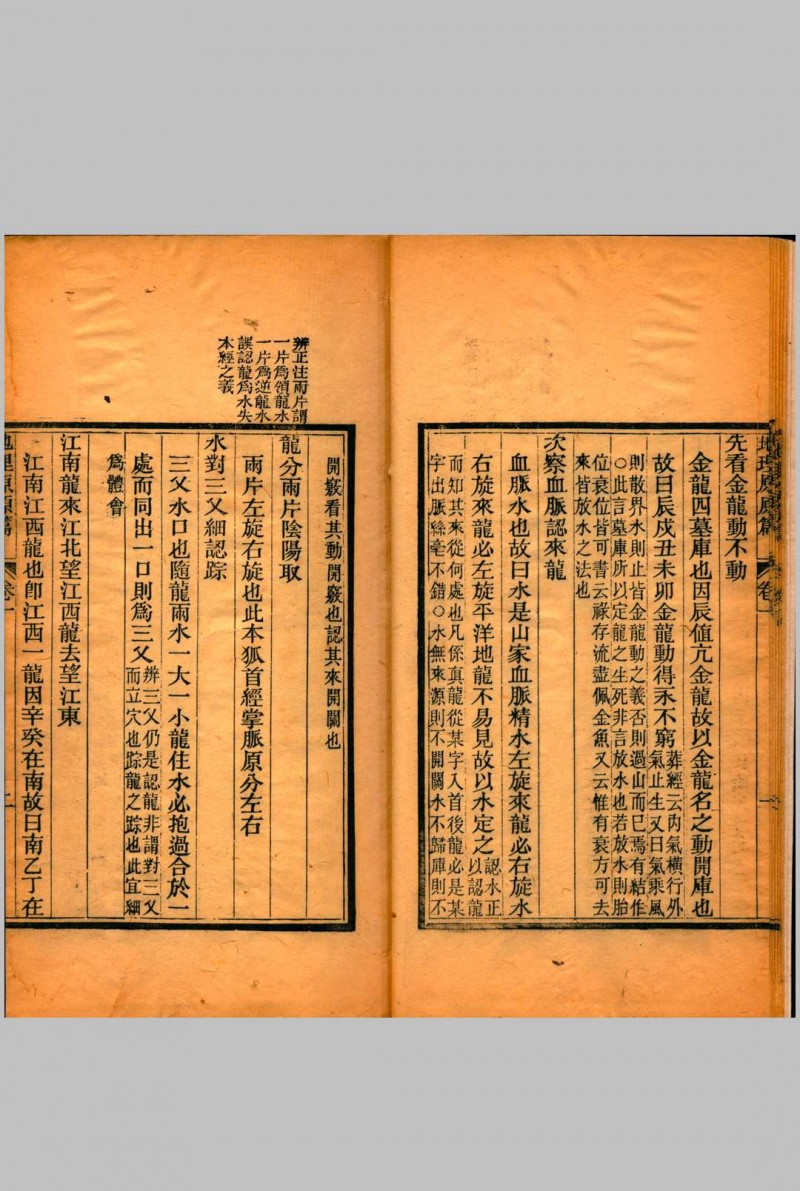 地理原原篇
卷一
一
先看金龍動不動
金龍四墓庫也因辰值亢金龍故以金龍名之動開庫也
故曰辰戌丑未卯金龍動得永不窮
葬經云內氣橫行外
氣止生又曰氣乘風
則散界水則止皆金龍動之義否則過山而已焉有結作
○此言墓庫所以定龍之生死非言放水也若放水則胎
位衰位皆可書云祿存流盡佩金魚又云惟有衰方可去
來皆放水之法也
次察血脈認來龍
血脈水也故曰水是山家血脈精水左旋來龍必右旋水
右旋來龍必左旋平洋地龍不易見故以水定之
認水正
以認龍
而知其來從何處也凡係真龍從某字入首後龍必是某
字出脈絲毫不錯○水無來源則不開關水不歸庫則不
開竅看其動開竅也認其來開關也
辨正注兩片謂
一片為領龍水
一片為逆龍水
誤認龍為水失
本經之義
龍分兩片陰陽取
兩片左旋右旋也此本狐首經掌脈原分左右
水對三叉細認踪
三叉水口也隨龍兩水一大一小龍住水必抱過合於一
處而同出一口則為三叉
辨三叉仍是認龍非謂對三叉
而立穴也踪龍之踪也此宜細
為體會
江南龍來江北望江西龍去望江東
江南江西龍也卽江西一龍因辛癸在南故曰南乙丁在
地理原原篇
卷一
二